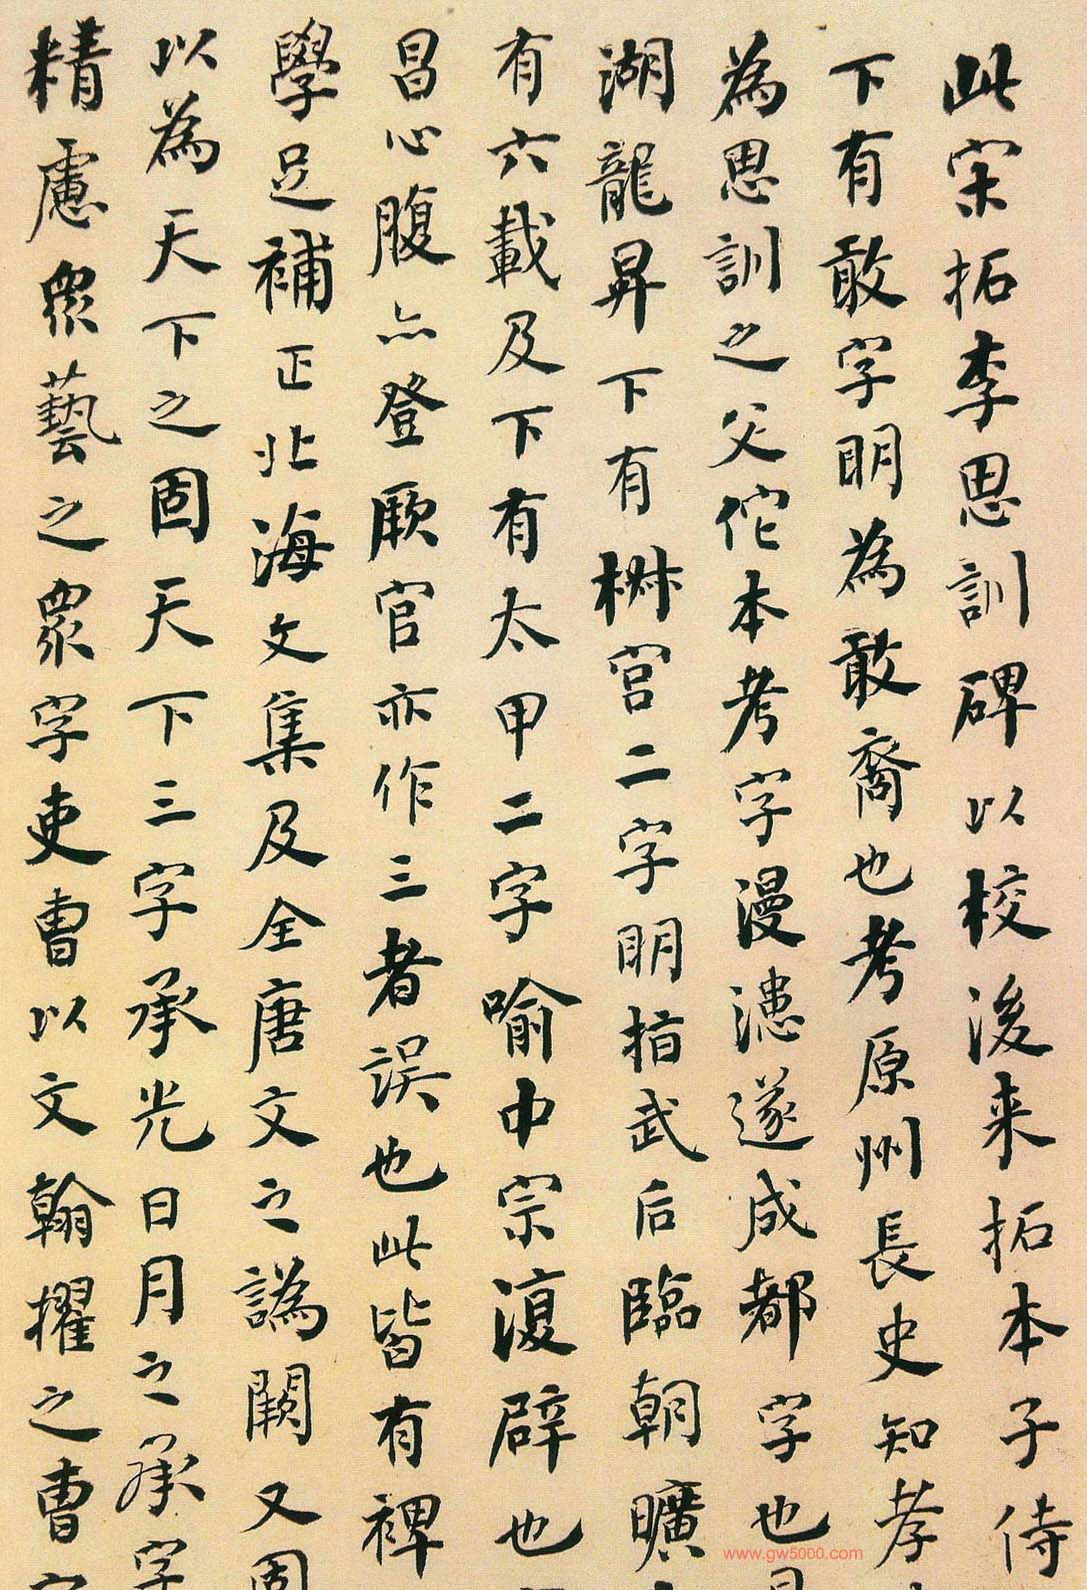 此宋拓李思訓碑以校後来拓本子侍
下有敢字明為敢裔也考原州長史知孝
為思訓之父佗本考字漫漶遂成都字也
湖龍昇下有樹宮二字明指武后臨朝曠
有六載及下有太甲二字喻中宗復辟也
昌心腹亦登厥官亦作三者誤也此皆有裨
學足補正北海文集及全唐文之譌闕又固
以為天下之固天下三字承光日月之承字
精慮眾藝之眾字吏曹以文翰擢之曹
www.gw5000.com